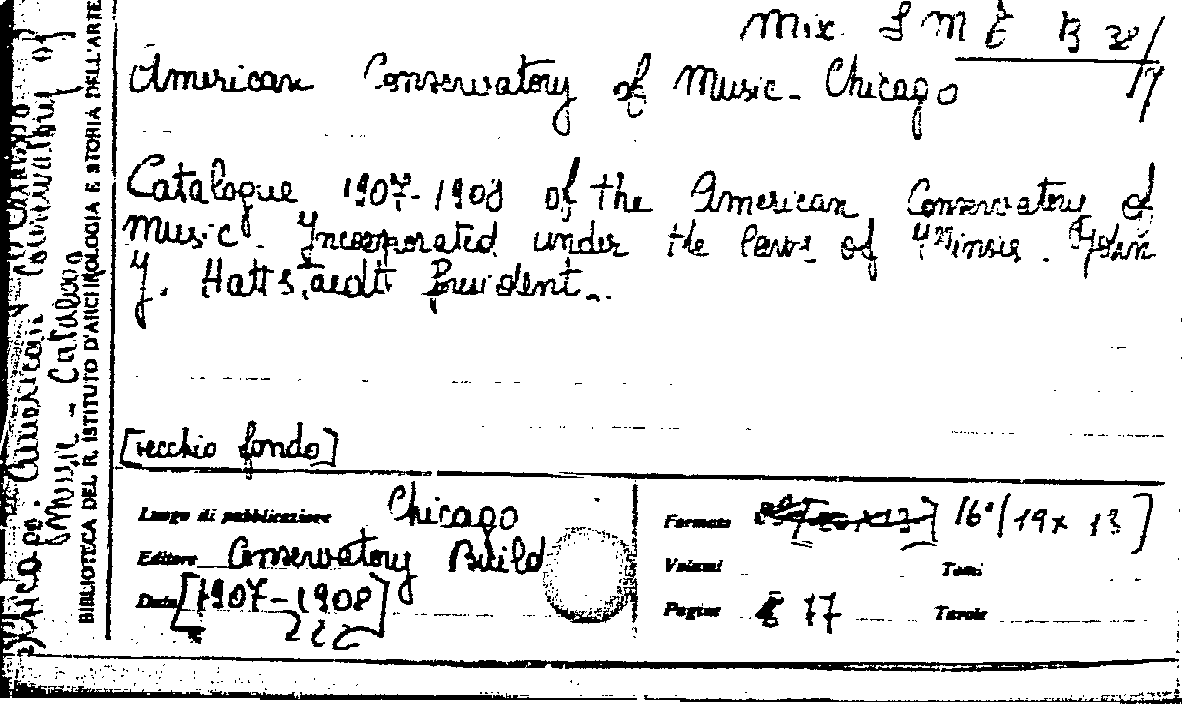 Mix. S M E B 38/
17
American Conservatory of Music - Chicago
Catalogue 1907-1908 of the American Conservatory of
Music. Incorporated under the laws of Illinois. John
J. Hattstaedt President.
[vecchio fondo]
Luogo di pubblicazione Chicago
Editore Conservatory Build
Data [1907-1908]
Formato 16° (19 x 13]
Volumi Tomi
Pagine 77 Tavole
BIBLIOTECA DEL R. ISTITUTO D'ARCHEOLOGIA E STORIA DELL'ARTE
Chicago. American Conservatory of
Music - Catalogo